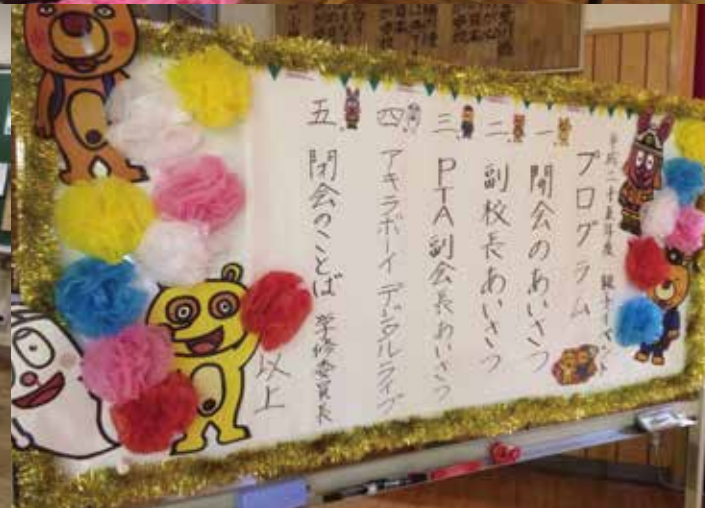 平成二十五年度 親子イベント
プログラム
一、開会のあいさつ
二、副校長あいさつ
三、PTA副会長あいさつ
四、アキラボーイ デジタルライブ
五、閉会のことば 学修委員長
以上